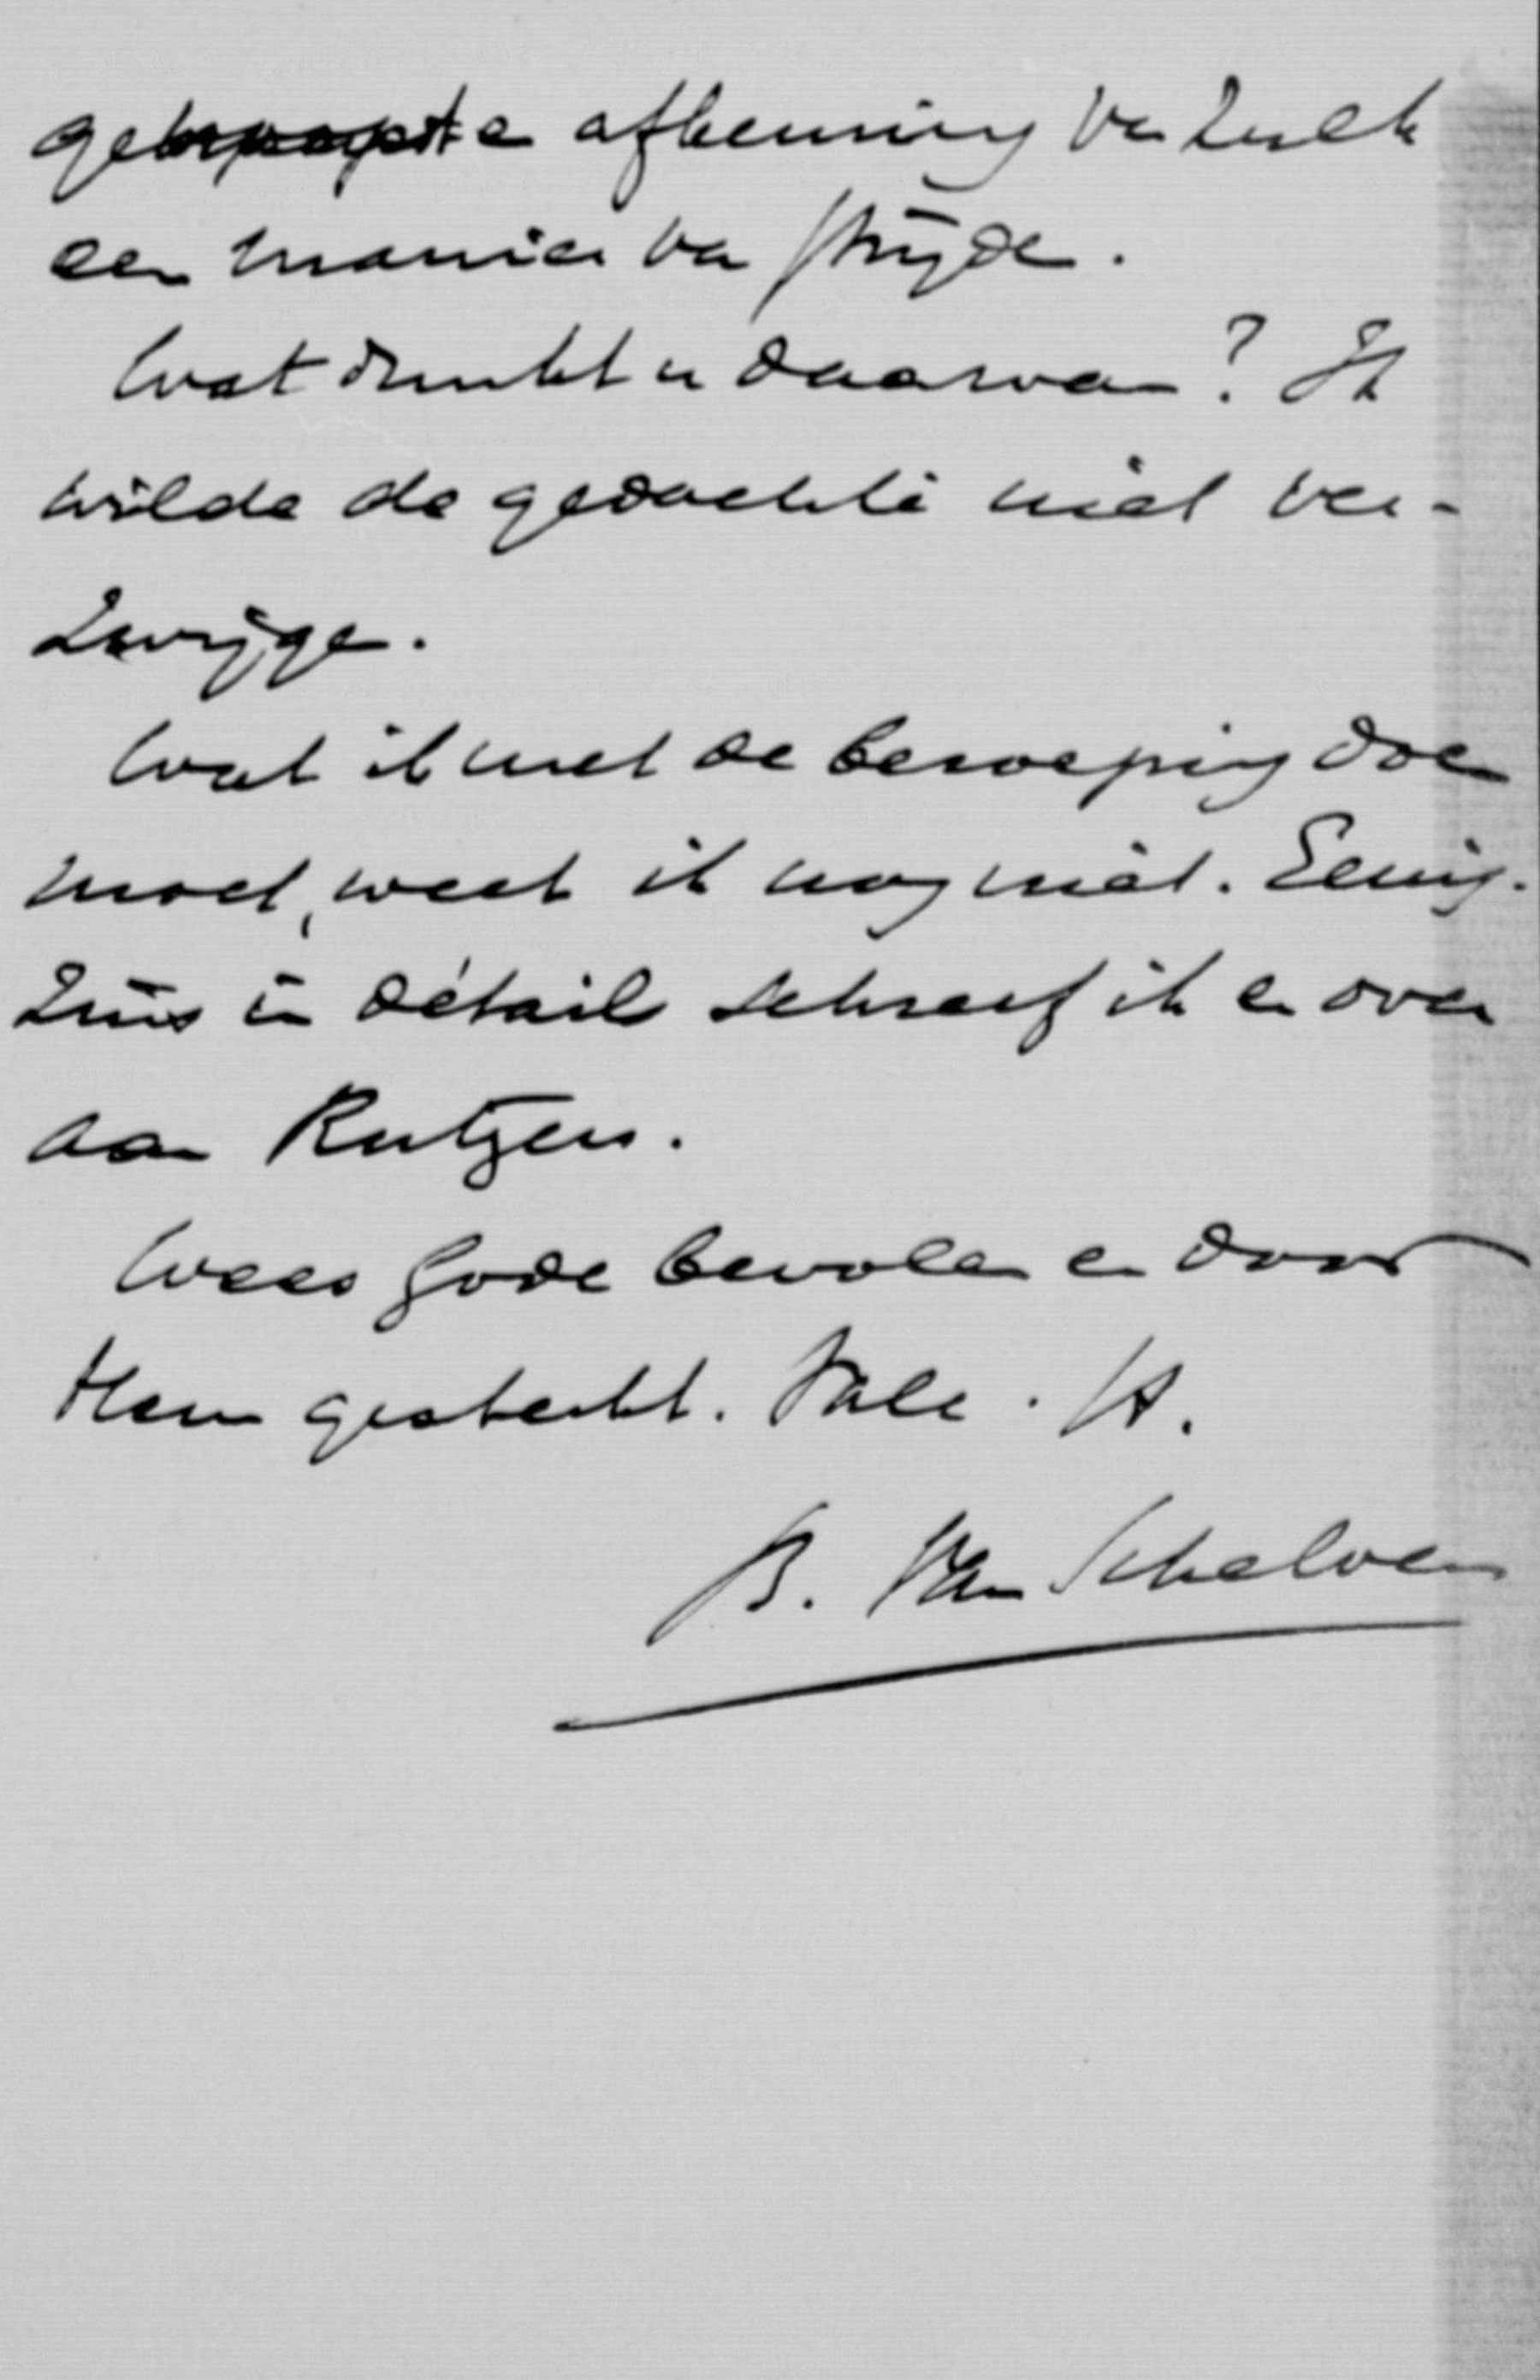 afkeuring van zulk
een manier van strijden.
Wat dunkt u daarvan? Ik
wilde de gedachte niet ver-
zwijgen.
Wat ik met de beroeping doen
moet, weet ik nog niet. Eenig-
zins in détails schreef ik er over
aan Rutgers.
Wees Gode bevolen en door
Hem gesterkt. Vale. tt.
B. Van Schelven